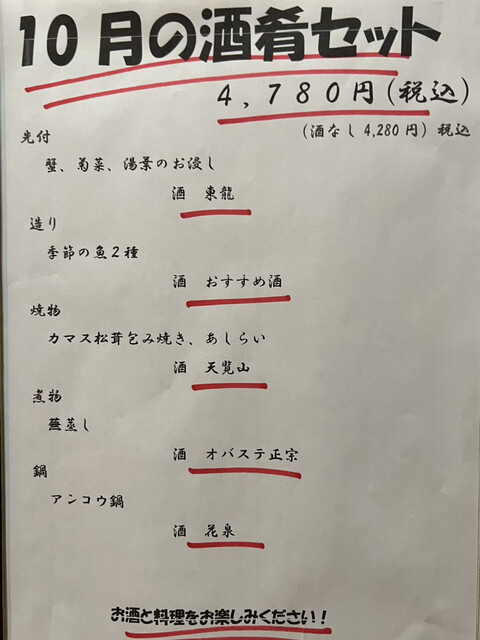 10月の酒肴セット
4,780円(税込)
(酒なし4,280円) 税込
先付
蟹、菊菜、湯葉のお浸し
酒 東龍
造り
季節の魚2種
酒 おすすめ酒
焼物
カマス松茸包み焼き、あしらい
酒 天覧山
煮物
蕪蒸し
酒 オバステ正宗
鍋
アンコウ鍋
酒 花泉
お酒と料理をお楽しみください!